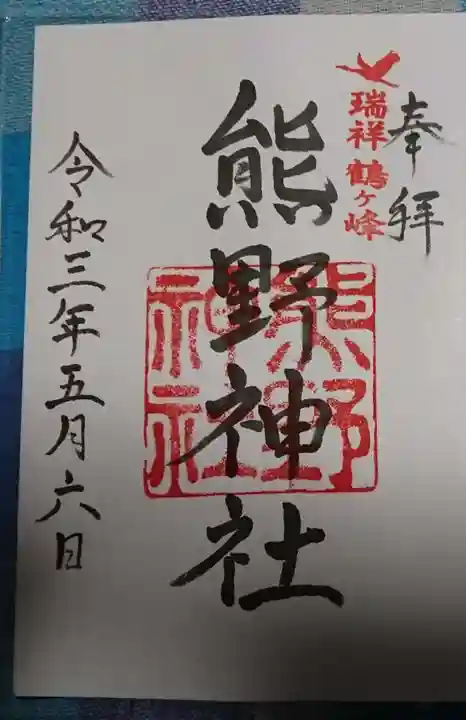 奉拝
瑞祥鶴ヶ峰
熊野神社
熊野
神社
令和三年五月六日